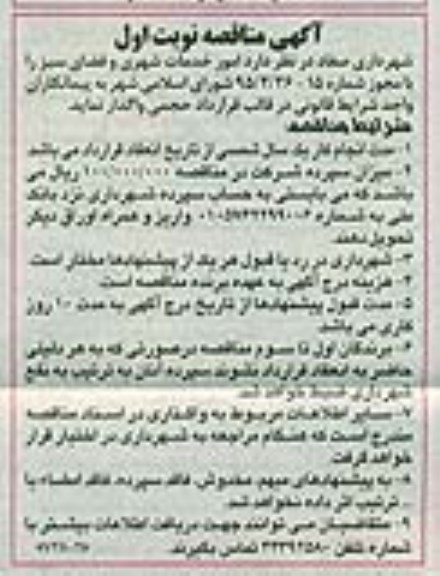 آگهی مناقصه نوبت اول
شهرداری صفاد در نظر دارد امور خدمات شهری و فضای سبز را
با مجوز شماره ۱۵ - ۹۵/۲/۲۶ شورای اسلامی شهر به پیمانکاران
واجد شرایط قانونی در قالب قرارداد حجمی واگذار نماید.
شرایط مناقصه:
۱- مدت انجام کار یک سال شمسی از تاریخ انعقاد قرارداد می باشد
۲- میزان سپرده شرکت در مناقصه ۱۰۰/۰۰۰/۰۰۰ ریال می
باشد که می بایستی به حساب سپرده شهرداری نزد بانک
ملی به شماره واریز و همراه اوراق دیگر
تحویل دهند.
۳- شهرداری در رد یا قبول هر یک از پیشنهادها مختار است.
۴- هزینه درج آگهی به عهده برنده مناقصه است.
۵- مدت قبول پیشنهادها از تاریخ درج آگهی به مدت ۱۰ روز
کاری می باشد.
۶- برندگان اول تا سوم مناقصه درصورتی که به هر دلیلی
حاضر به انعقاد قرارداد نشوند سپرده آنان به ترتیب به نفع
شهرداری ضبط خواهد شد.
۷- سایر اطلاعات مربوط به واگذاری در اسناد مناقصه
مندرج است که هنگام مراجعه به شهرداری در اختیار قرار
خواهد گرفت.
۸- به پیشنهادهای مبهم، مخدوش، فاقد سپرده، فاقد امضاء یا
... ترتیب اثر داده نخواهد شد.
۹- متقاضیان می توانند جهت دریافت اطلاعات بیشتر با
شماره تلفن ۳۳۳۹۲۵۸۰ تماس بگیرند.